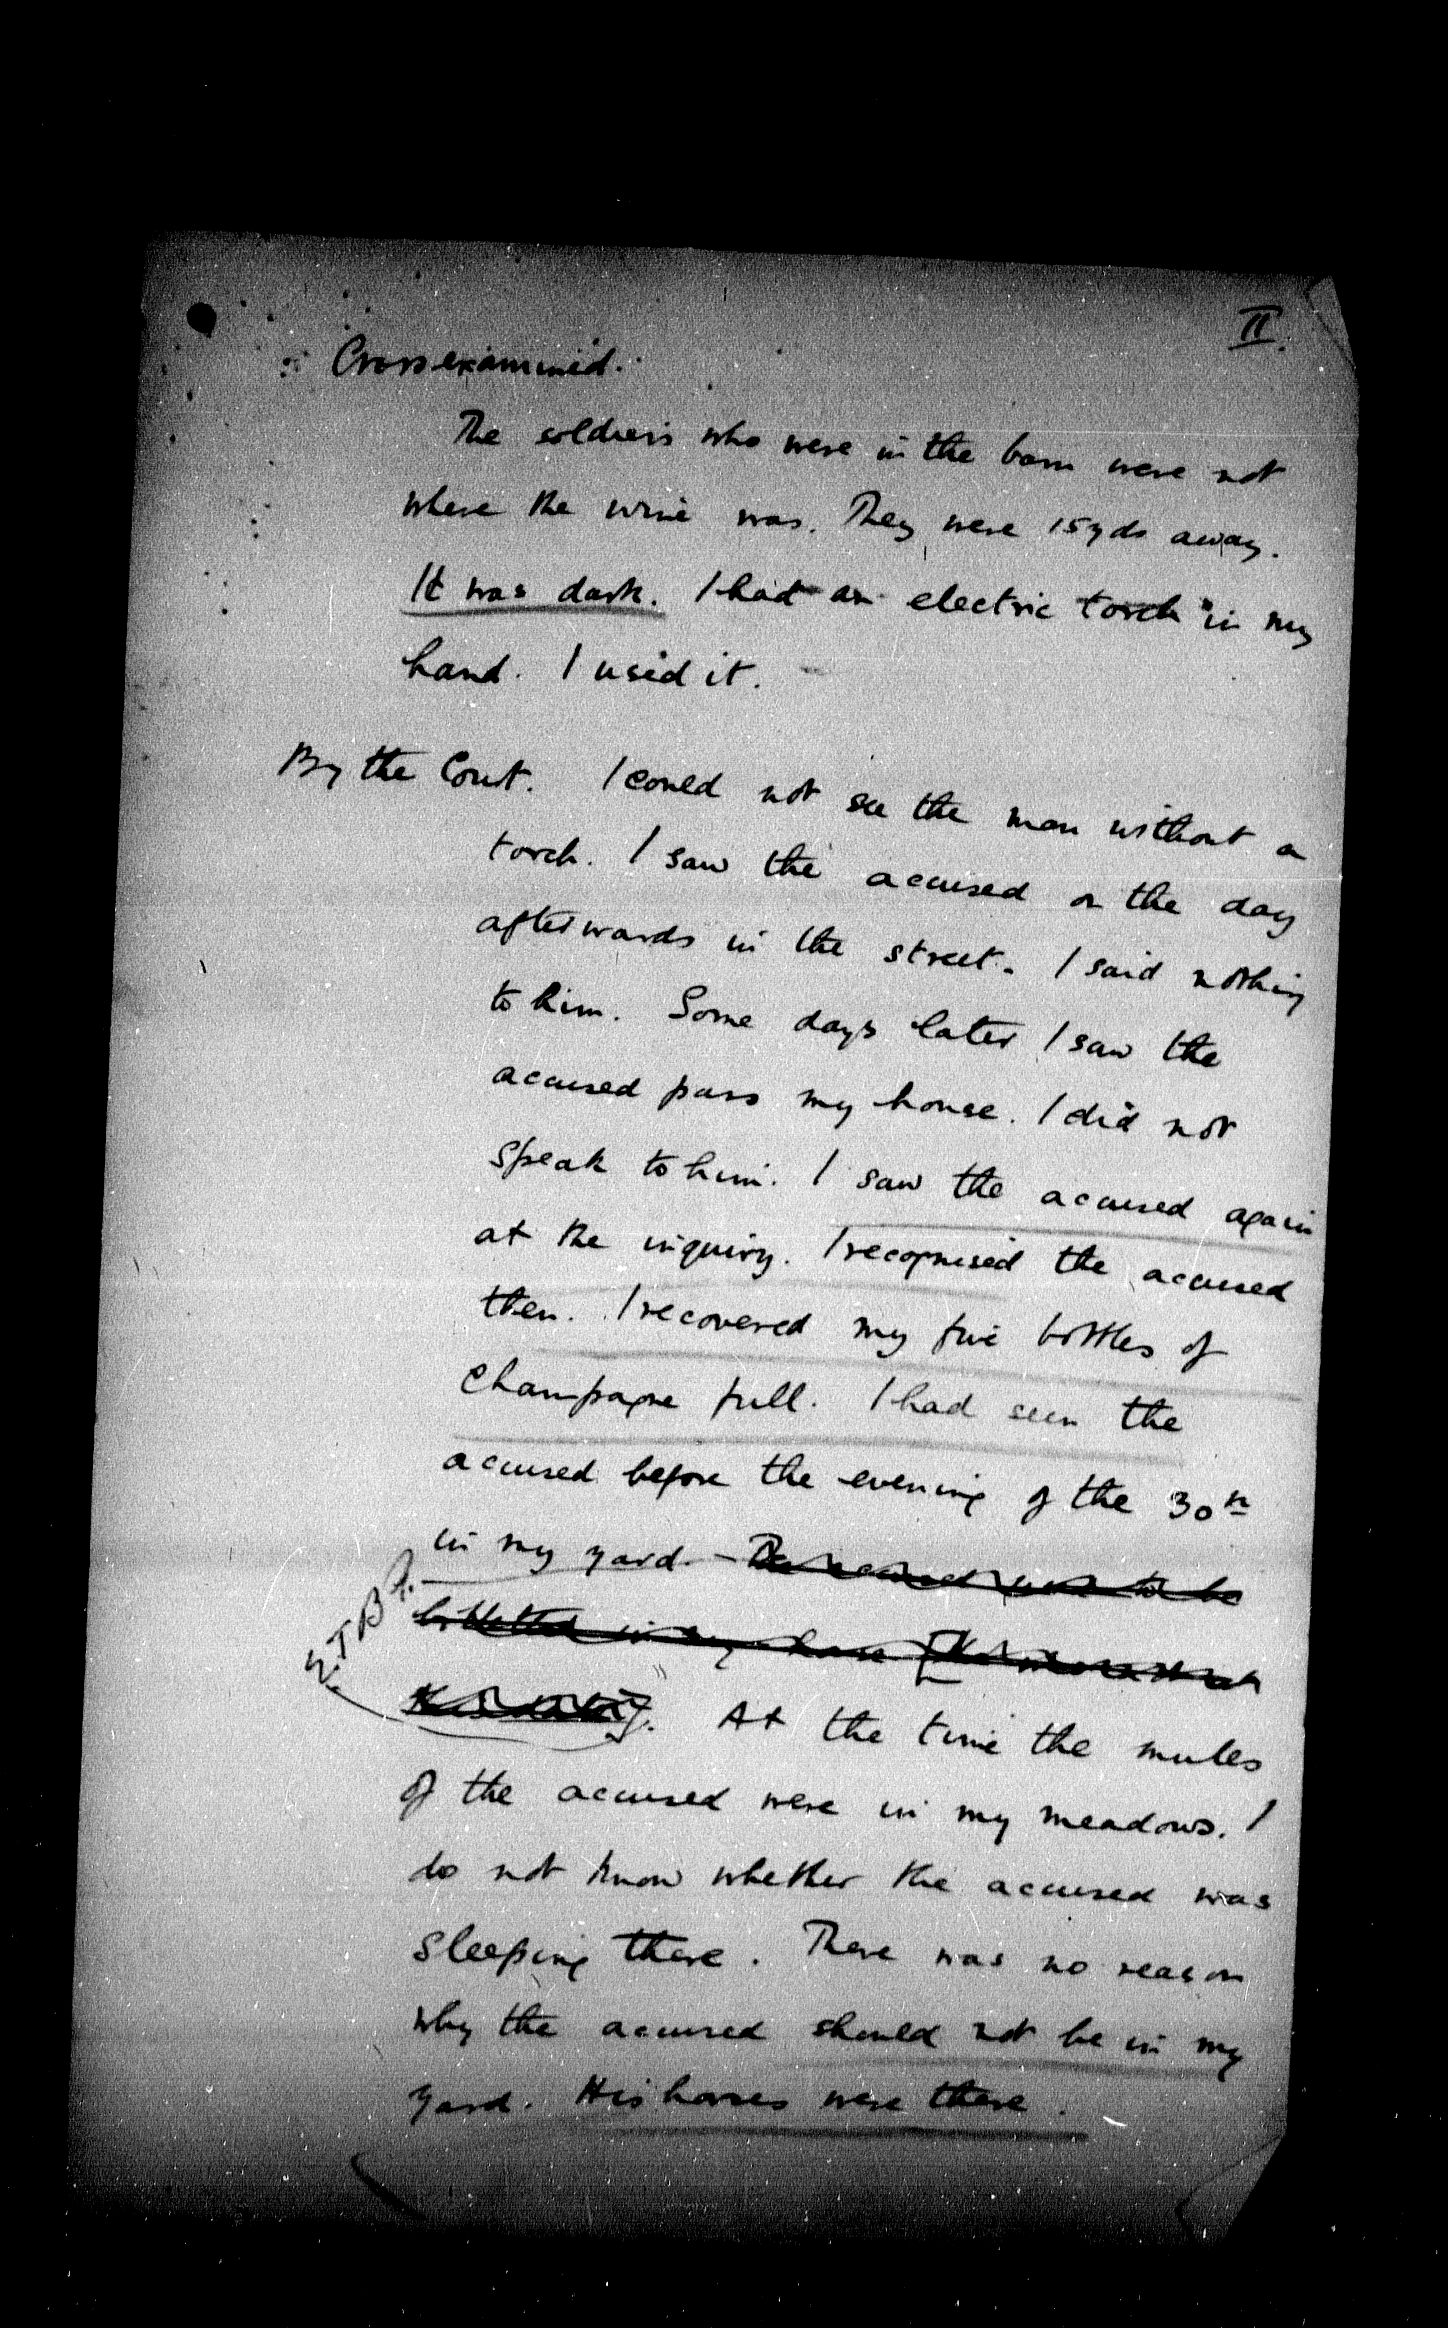 II.
Cross examined.
The soldiers who were in the barn were not
where the wine was. They were 15 yds away.
It was dark. I had an electric torch in my
hand. I used it.
By the Court. I could not see the man without a
torch. I saw the accused on the day
afterwards in the street. I said nothing
to him. Some days later I saw the
accused pass my house. I did not
speak to him. I saw the accused again
at the inquiry. I recognised the accused
then. I recovered my five bottles of
champagne full. I had seen the
accused before the evening of the 30th
in my yard.
At the time the mules
of the accused were in my meadows. I
do not know whether the accused was
sleeping there. There was no reason
why the accused should not be in my
yard. His horses were there.